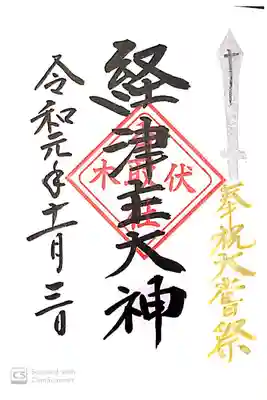 奉祝大嘗祭
経津主大神
伏
木
令和元年十一月三日
CS Scanned with
CamScanner